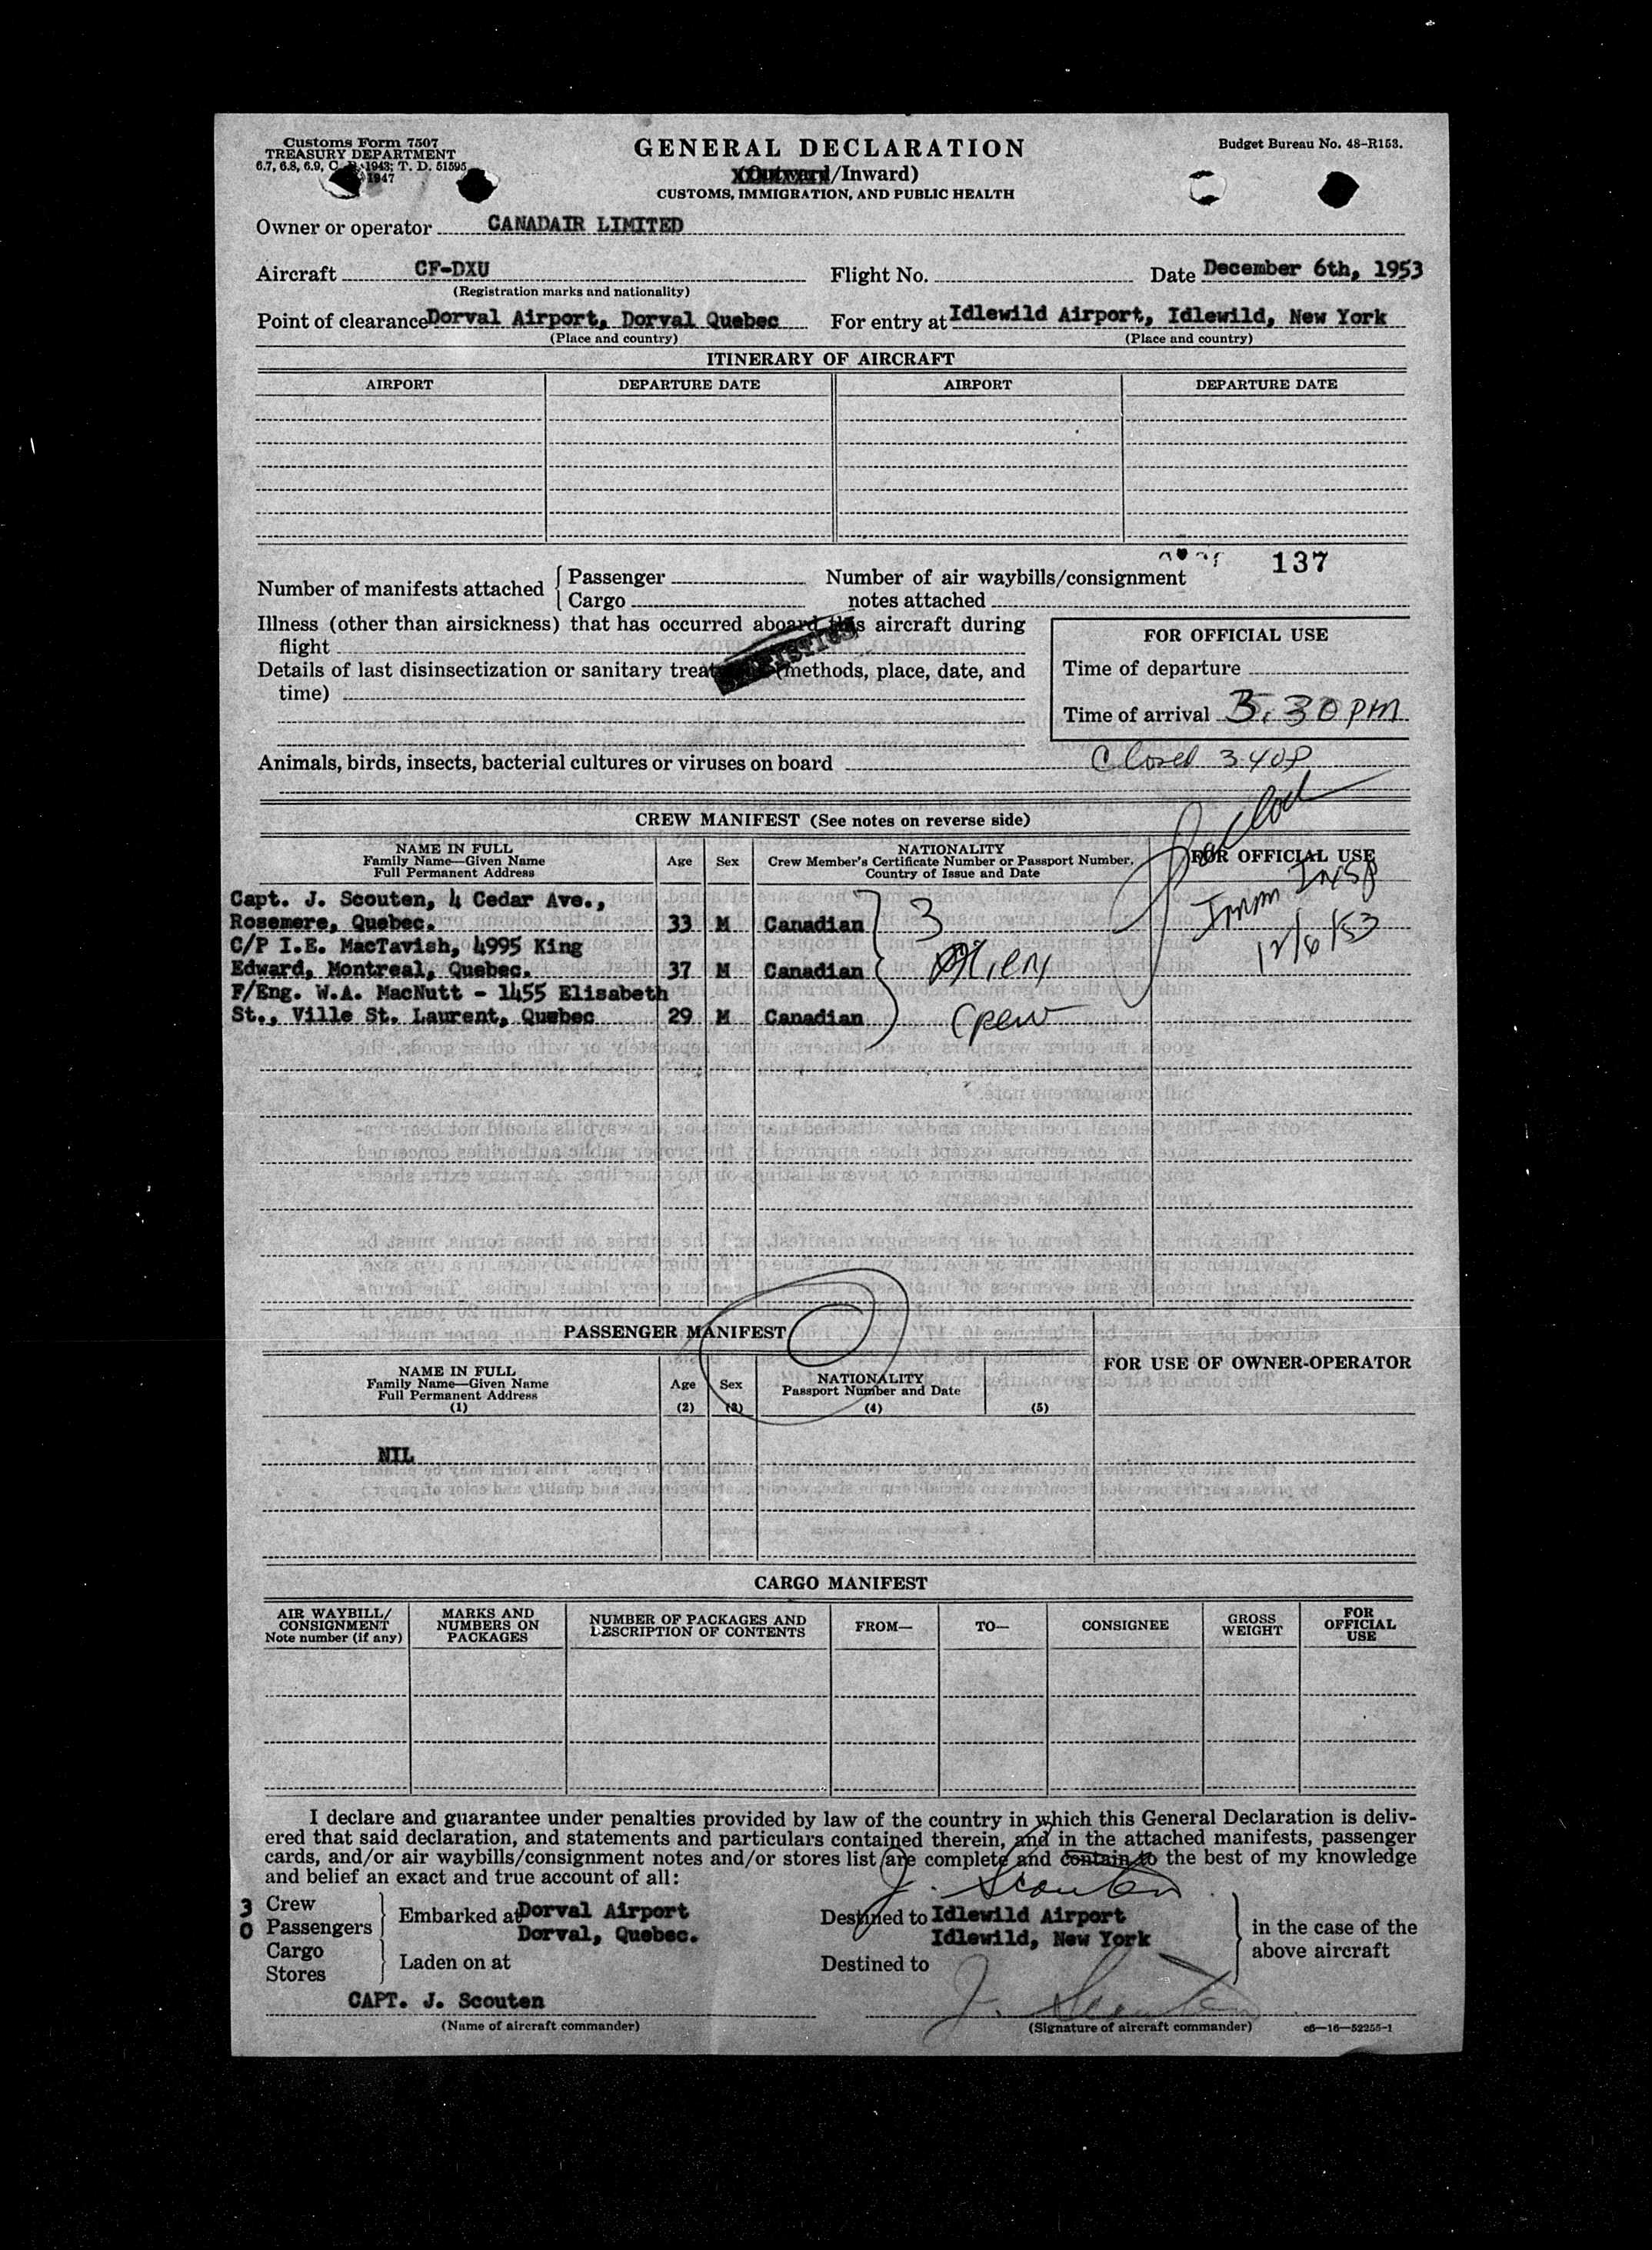 Customs Form 7507
TREASURY DEPARTMENT
6.7, 6.8, 6.9, C. R. 1943; T. D. 51595
1947
GENERAL DECLARATION
(Outward/Inward)
CUSTOMS, IMMIGRATION, AND PUBLIC HEALTH
Budget Bureau No. 48-R153.
Owner or operator CANADAIR LIMITED
Aircraft CF-DXU Flight No. Date December 6th, 1953
(Registration marks and nationality)
Point of clearance Dorval Airport, Dorval Quebec For entry at Idlewild Airport, Idlewild, New York
(Place and country) (Place and country)
ITINERARY OF AIRCRAFT
AIRPORT DEPARTURE DATE AIRPORT DEPARTURE DATE
137
Number of manifests attached Passenger Number of air waybills/consignment
Cargo notes attached
Illness (other than airsickness) that has occurred aboard this aircraft during
flight
STATISTICS
Details of last disinsectization or sanitary treatment (methods, place, date, and
time)
FOR OFFICIAL USE
Time of departure
Time of arrival 3.30 PM
Closed 340P
Animals, birds, insects, bacterial cultures or viruses on board
CREW MANIFEST (See notes on reverse side)
NAME IN FULL
Family Name—Given Name
Full Permanent Address
Age Sex
NATIONALITY
Crew Member's Certificate Number or Passport Number,
Country of Issue and Date
FOR OFFICIAL USE
Imm Insp
12/6/53
Capt. J. Scouten, 4 Cedar Ave.,
Rosemere, Quebec. 33 M Canadian 3
C/P I.E. MacTavish, 4995 King
Edward, Montreal, Quebec. 37 M Canadian Alien
F/Eng. W.A. MacNutt - 1455 Elisabeth
St., Ville St. Laurent, Quebec 29 M Canadian Crew
PASSENGER MANIFEST 0
NAME IN FULL
Family Name—Given Name
Full Permanent Address
(1)
Age
(2)
Sex
(3)
NATIONALITY
Passport Number and Date
(4) (5)
FOR USE OF OWNER-OPERATOR
NIL
CARGO MANIFEST
AIR WAYBILL/
CONSIGNMENT
Note number (if any)
MARKS AND
NUMBERS ON
PACKAGES
NUMBER OF PACKAGES AND
DESCRIPTION OF CONTENTS
FROM— TO— CONSIGNEE
GROSS
WEIGHT
FOR
OFFICIAL
USE
I declare and guarantee under penalties provided by law of the country in which this General Declaration is deliv-
ered that said declaration, and statements and particulars contained therein, and in the attached manifests, passenger
cards, and/or air waybills/consignment notes and/or stores list are complete and contain to the best of my knowledge
and belief an exact and true account of all:
J. Scouten
3 Crew
0 Passengers
Cargo
Stores
Embarked at Dorval Airport
Dorval, Quebec.
Laden on at
Destined to Idlewild Airport
Idlewild, New York
Destined to
in the case of the
above aircraft
CAPT. J. Scouten J. Scouten
(Name of aircraft commander) (Signature of aircraft commander) c6—16—52255-1